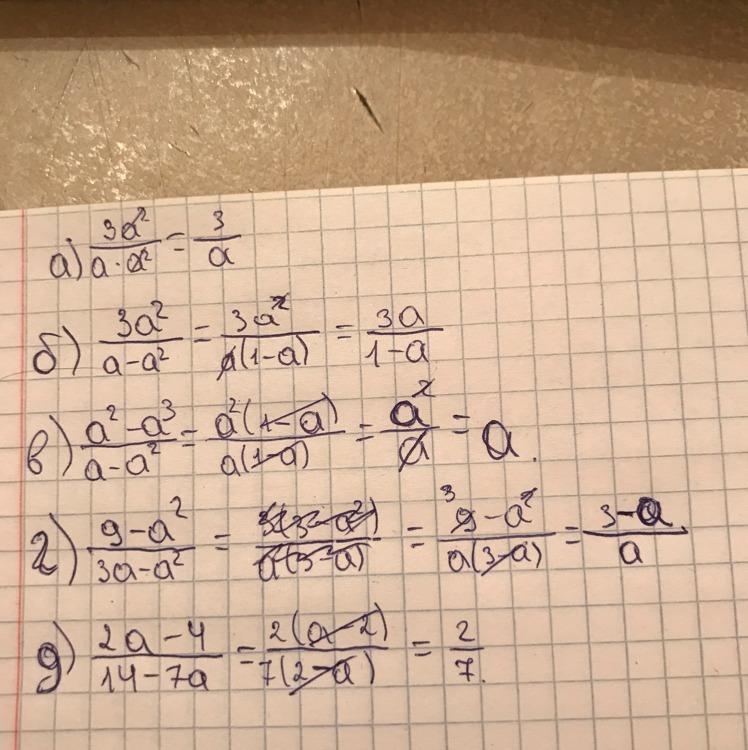 а) 3a²/(a·a²) = 3/a
б) 3a²/(a-a²) = 3a²/(a(1-a)) = 3a/(1-a)
в) (a²-a³)/(a-a²) = a²(1-a)/(a(1-a)) = a²/a = a.
г) (9-a²)/(3a-a²) = = (9-a²)/(a(3-a)) = (3-a)/a
д) (2a-4)/(14-7a) = 2(a-2)/(7(2-a)) = 2/7.